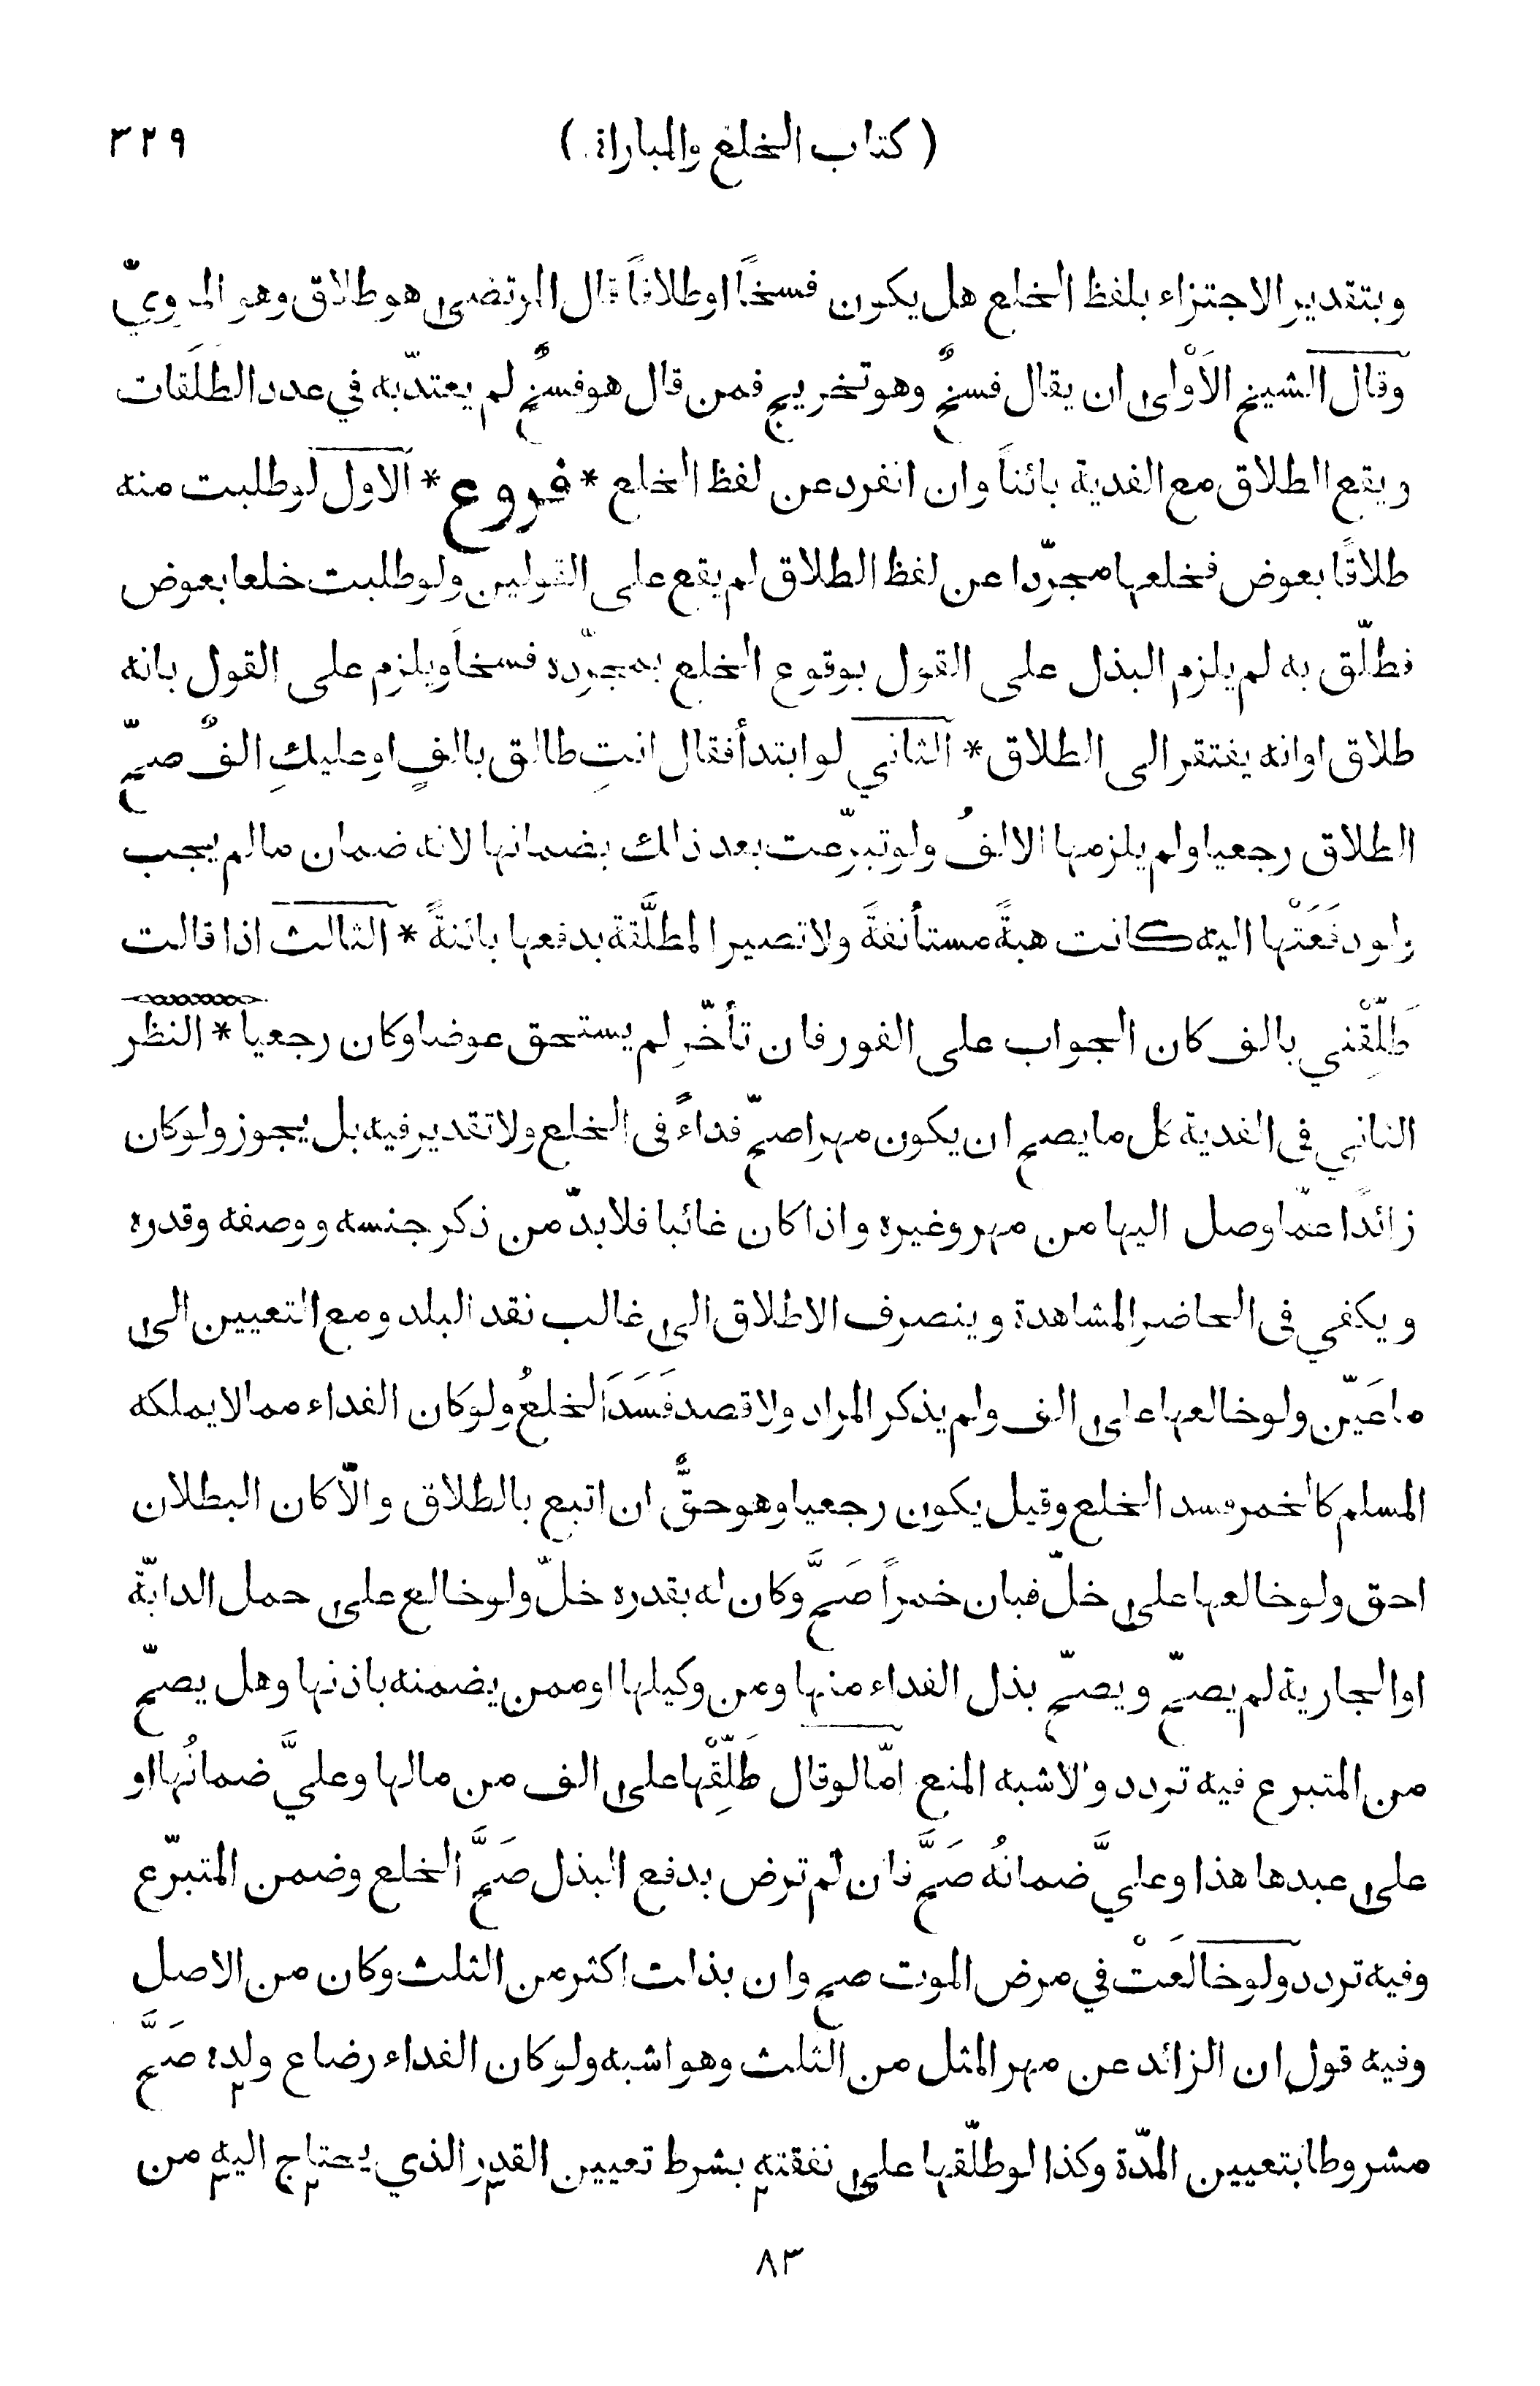 ( كتاب الخلع والمباراة ) ٣٢٩
وبتقدير الاجتزاء بلفظ الخلع هل يكون فسخاً او طلاقاً قال المرتضى هو طلاق وهو المرويّ
وقال الشيخ الاَوْلى ان يقال فسخٌ وهو تخريج فمن قال هو فسخٌ لم يعتدّ به في عدد الطلَقات
ويقع الطلاق مع الفدية بائناً وان انفرد عن لفظ الخلع * فروع * الاول لو طلبت منه
طلاقًا بعوض فخلعها مجرّدا عن لفظ الطلاق لم يقع على القولين ولو طلبت خلعا بعوض
فطلّق به لم يلزم البذل على القول بوقوع الخلع بمجرّده فسخاً ويلزم على القول بانه
طلاق او انه يفتقر الى الطلاق * الثاني لو ابتدأ فقال انتِ طالق بالفٍ او عليكِ الفٌ صحّ
الطلاق رجعيا ولم يلزمها الالفُ ولو تبرّعت بعد ذلك بضمانها لانه ضمان ما لم يجب
ولو دفَعَتْها اليه كانت هبةً مستأنفةً ولا تصير المطلَّقة بدفعها بائنةً * الثالث اذا قالت
طَلِّقْني بالف كان الجواب على الفور فان تأخّر لم يستحق عوضا وكان رجعيا * النظر
الثاني فى الفدية كل ما يصح ان يكون مهرا صحّ فداءً فى الخلع ولا تقدير فيه بل يجوز ولو كان
زائدًا عمّا وصل اليها من مهر وغيره واذا كان غائبا فلا بدّ من ذكر جنسه ووصفه وقدره
ويكفي فى الحاضر المشاهدة وينصرف الاطلاق الى غالب نقد البلد ومع التعيين الى
ما عَيّن ولو خالعها على الف ولم يذكر المراد ولا قصد فَسَدَ الخلعُ ولو كان الفداء مما لا يملكه
المسلم كالخمر فسد الخلع وقيل يكون رجعيا وهو حقٌّ ان اتبع بالطلاق والّا كان البطلان
احق ولو خالعها على خلّ فبان خمراً صَحَّ وكان له بقدره خلّ ولو خالع على حمل الدابّة
او الجارية لم يصحّ ويصحّ بذل الفداء منها ومن وكيلها او ممن يضمنه باذنها وهل يصحّ
من المتبرع فيه تردد والاشبه المنع امّا لو قال طَلِّقْها على الف من مالها وعليَّ ضمانُها او
على عبدها هذا وعليَّ ضمانُه صَحَّ فان لم ترض بدفع البذل صَحَّ الخلع وضمن المتبرّع
وفيه تردد ولو خالَعَتْ في مرض الموت صح وان بذلت اكثر من الثلث وكان من الاصل
وفيه قول ان الزائد عن مهر المثل من الثلث وهو اشبه ولو كان الفداء رضاع ولده صَحَّ
مشروطا بتعيين المدّة وكذا لو طلّقها على نفقته بشرط تعيين القدر الذي يحتاج اليه من
٨٣